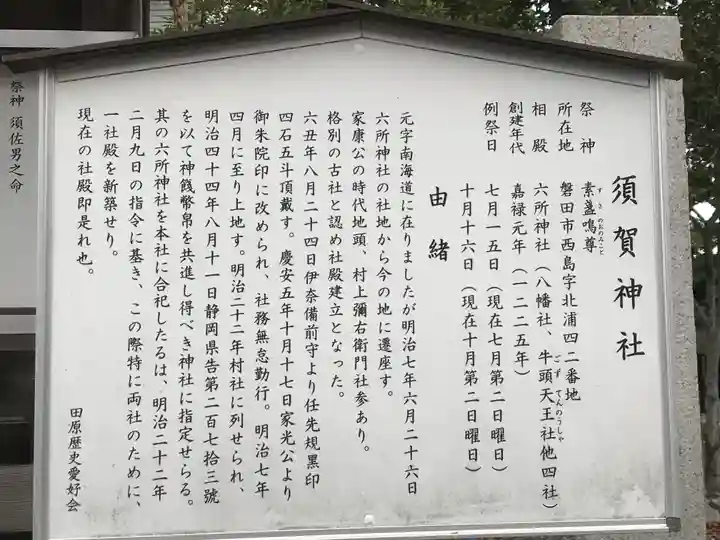 須賀神社
祭神 素盞嗚尊
すさのおのみこと
所在地 磐田市西島字北浦四二番地
相殿 六所神社(八幡社、牛頭天王社他四社)
ごずてんのうしゃ
創建年代 嘉禄元年(一二二五年)
例祭日 七月一五日(現在七月第二日曜日)
十月十六日(現在十月第二日曜日)
由緒
元字南海道に在りましたが明治七年六月二十六日
六所神社の社地から今の地に遷座す。
家康公の時代地頭、村上彌右衛門社参あり。
格別の古社と認め社殿建立となった。
六丑年八月二十四日伊奈備前守より任先規黒印
四石五斗頂戴す。慶安五年十月十七日家光公より
御朱院印に改められ、社務無怠勤行。明治七年
四月に至り上地す。明治二十二年村社に列せられ、
明治四十四年八月十一日静岡県告第二百七拾三號
を以て神饌幣帛を共進し得べき神社に指定せらる。
其の六所神社を本社に合祀したるは、明治二十二年
二月九日の指令に基き、この際特に両社のために、
一社殿を新築せり。
現在の社殿即是れ也。
田原歴史愛好会
祭神 須佐男之命